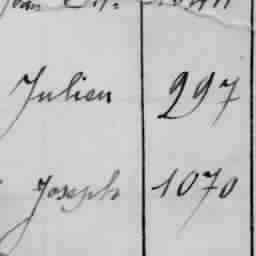 Julien 297
Joseph 1070